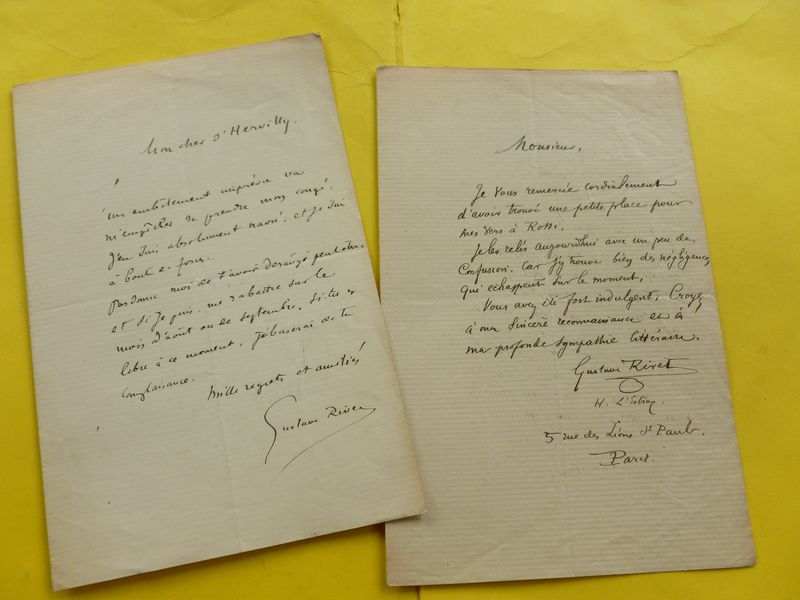 Mon cher d'Hervilly.
Un embêtement imprévu va
m'empêcher de prendre mon congé,
j'en suis absolument navré: et je suis
à bout de forces.
Pardonne moi de t'avoir dérangé peut-être,
et si je puis me rabattre sur le
mois d'août ou de septembre, si tu es
libre à ce moment, j'abuserai de ta
complaisance.
Mille regrets et amitiés
Gustave Rivet
Monsieur,
Je vous remercie cordialement
d'avoir trouvé une petite place pour
mes vers à Rossi.
Je les relis aujourd'hui avec un peu de
Confusion. Car j'y trouve bien des négligences
qui échappent sur le moment.
Vous avez été fort indulgent, Croyez
à ma sincère reconnaissance et à
ma profonde sympathie littéraire.
Gustave Rivet
H.
5 rue des Lions St Paul.
Paris.